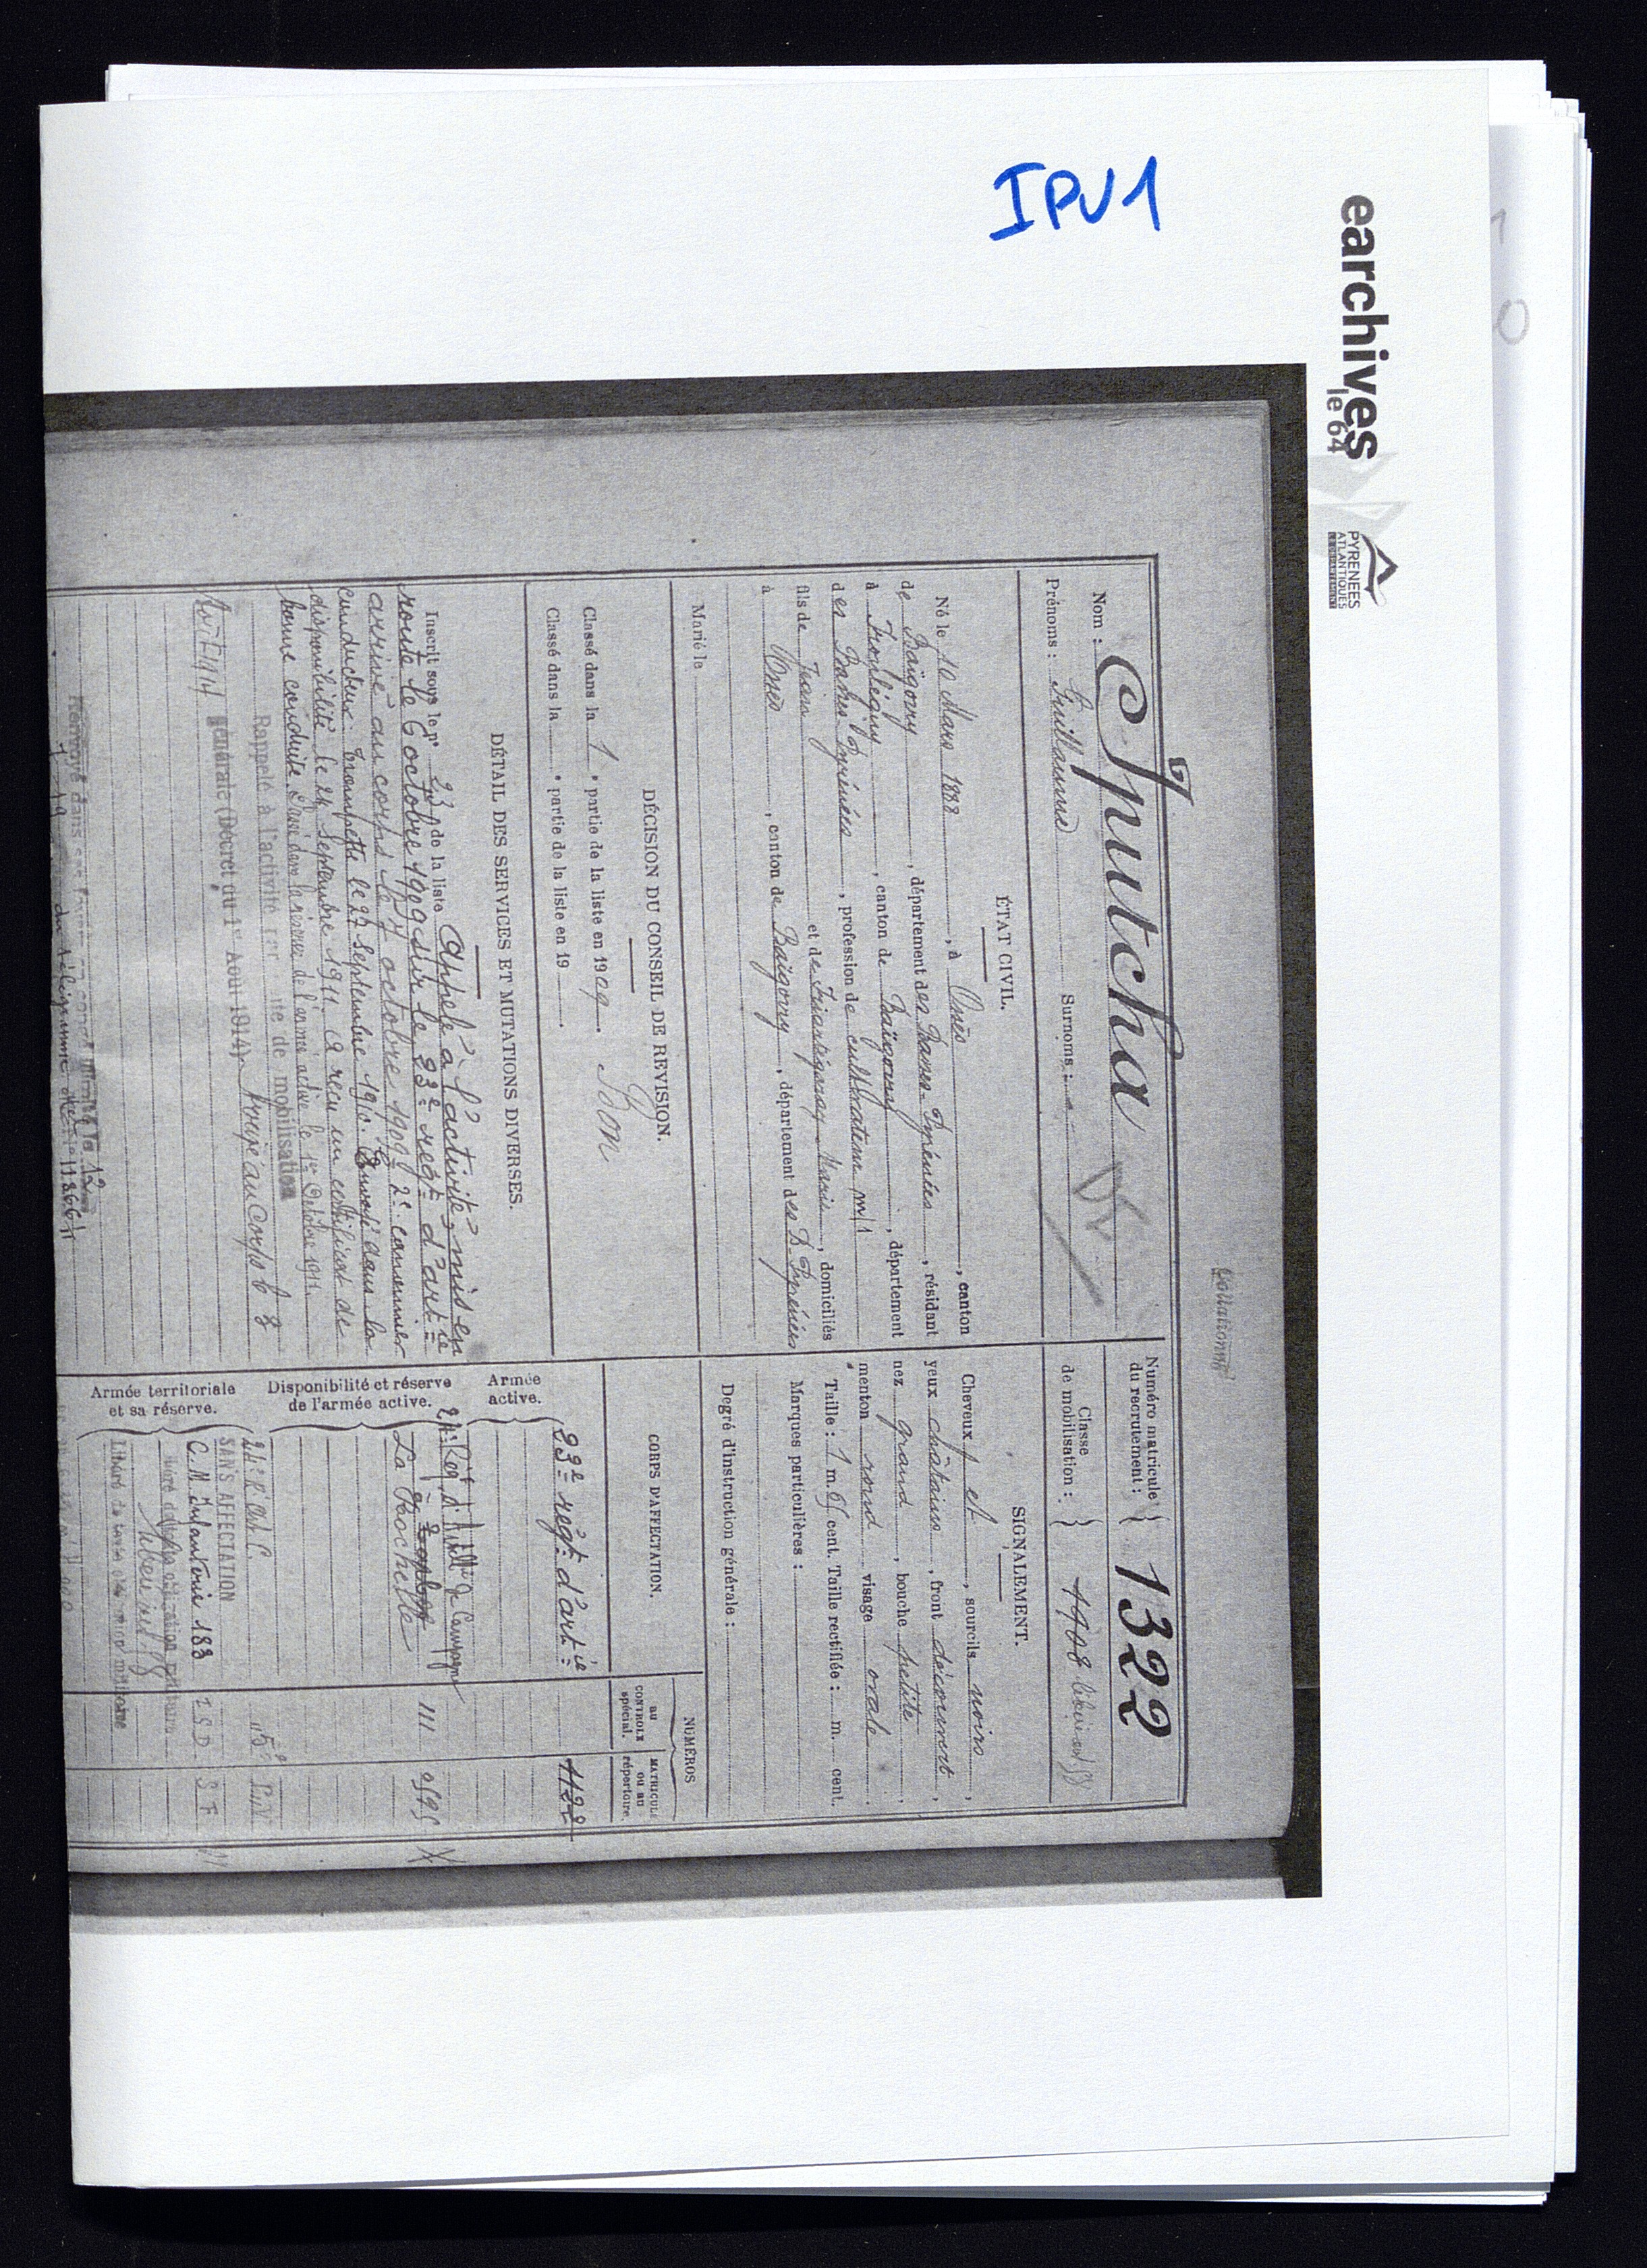 IPU1
earchives
le 64
PYRENEES
ATLANTIQUES
LE DEPARTEMENT
Collationné
Nom : Iputcha
Prénoms : Guillaume Surnoms :
Numéro matricule du recrutement : 1322
Classe de mobilisation : 1908
ÉTAT CIVIL.
Né le 10 Mars 1888, à Ossès, canton
de Baïgorry, département des Basses-Pyrénées, résidant
à Irouléguy, canton de Baïgorry, département
des Basses Pyrénées, profession de cultivateur m/1
fils de Jean et de Marie, domiciliés
à Ossès, canton de Baïgorry, département des B. Pyrénées
Marié le
SIGNALEMENT.
Cheveux et, sourcils noirs,
yeux châtains, front découvert,
nez grand, bouche petite,
menton rond visage ovale.
Taille : 1 m. 65 cent. Taille rectifiée : m. cent.
Marques particulières :
Degré d'instruction générale :
DÉCISION DU CONSEIL DE REVISION.
Classé dans la 1e partie de la liste en 1909. Bon
Classé dans la e partie de la liste en 19
DÉTAIL DES SERVICES ET MUTATIONS DIVERSES.
Inscrit sous le n° 23 de la liste Appelé à l'activité, mis en
route le 6 octobre 1909 sur le 23e régt d'artie
arrivé au corps le 7 octobre 1909 2e canonnier
conducteur. Trompette le 27 Septembre 1910. Envoyé dans la
disponibilité le 24 Septembre 1911. A reçu un certificat de
bonne conduite. Passé dans la réserve de l'armée active le 1er Octobre 1911.
Rappelé à l'activité de mobilisation
générale (Décret du 1er Août 1914). Arrivé au Corps le 8
Août 1914
CORPS D'AFFECTATION.
NUMÉROS
AU CONTROLE spécial.
MATRICULE OU AU répertoire.
Armée active.
23e régt d'artie 1122
Disponibilité et réserve de l'armée active.
Régt d'Artillie de Campagne
La Rochelle 111
Armée territoriale et sa réserve.
SANS AFFECTATION
C. M. Infanterie 183